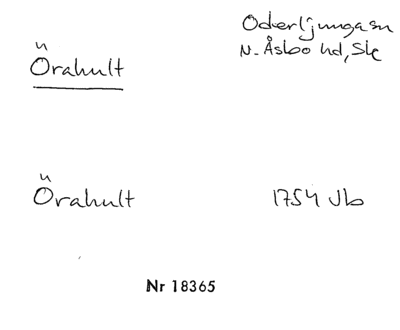 Oderljungasn
N. Åsbo hd, Sk
Örahult
Örahult 1754 Jb
Nr 18365